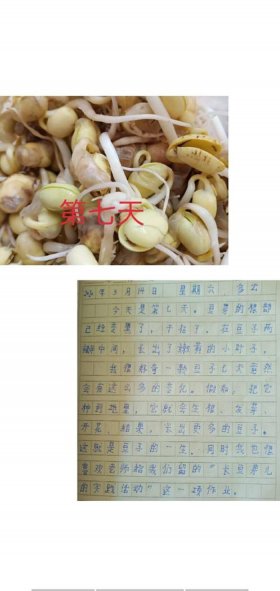 第七天
年3月14日 星期六 多云
今天是第七天。豆芽的根部
已经变黑了，干枯了，在豆子两
中间，长出了嫩黄的小叶子。
我很好奇一颗豆子七天竟然
会有这么多的变化。假如，把它
种到地里，它就会生根、发芽、
开花、结果，长出更多的豆子。
这就是豆子的一生。同时我也很
喜欢老师给我们留的“长豆芽儿
的实践活动”这一项作业。